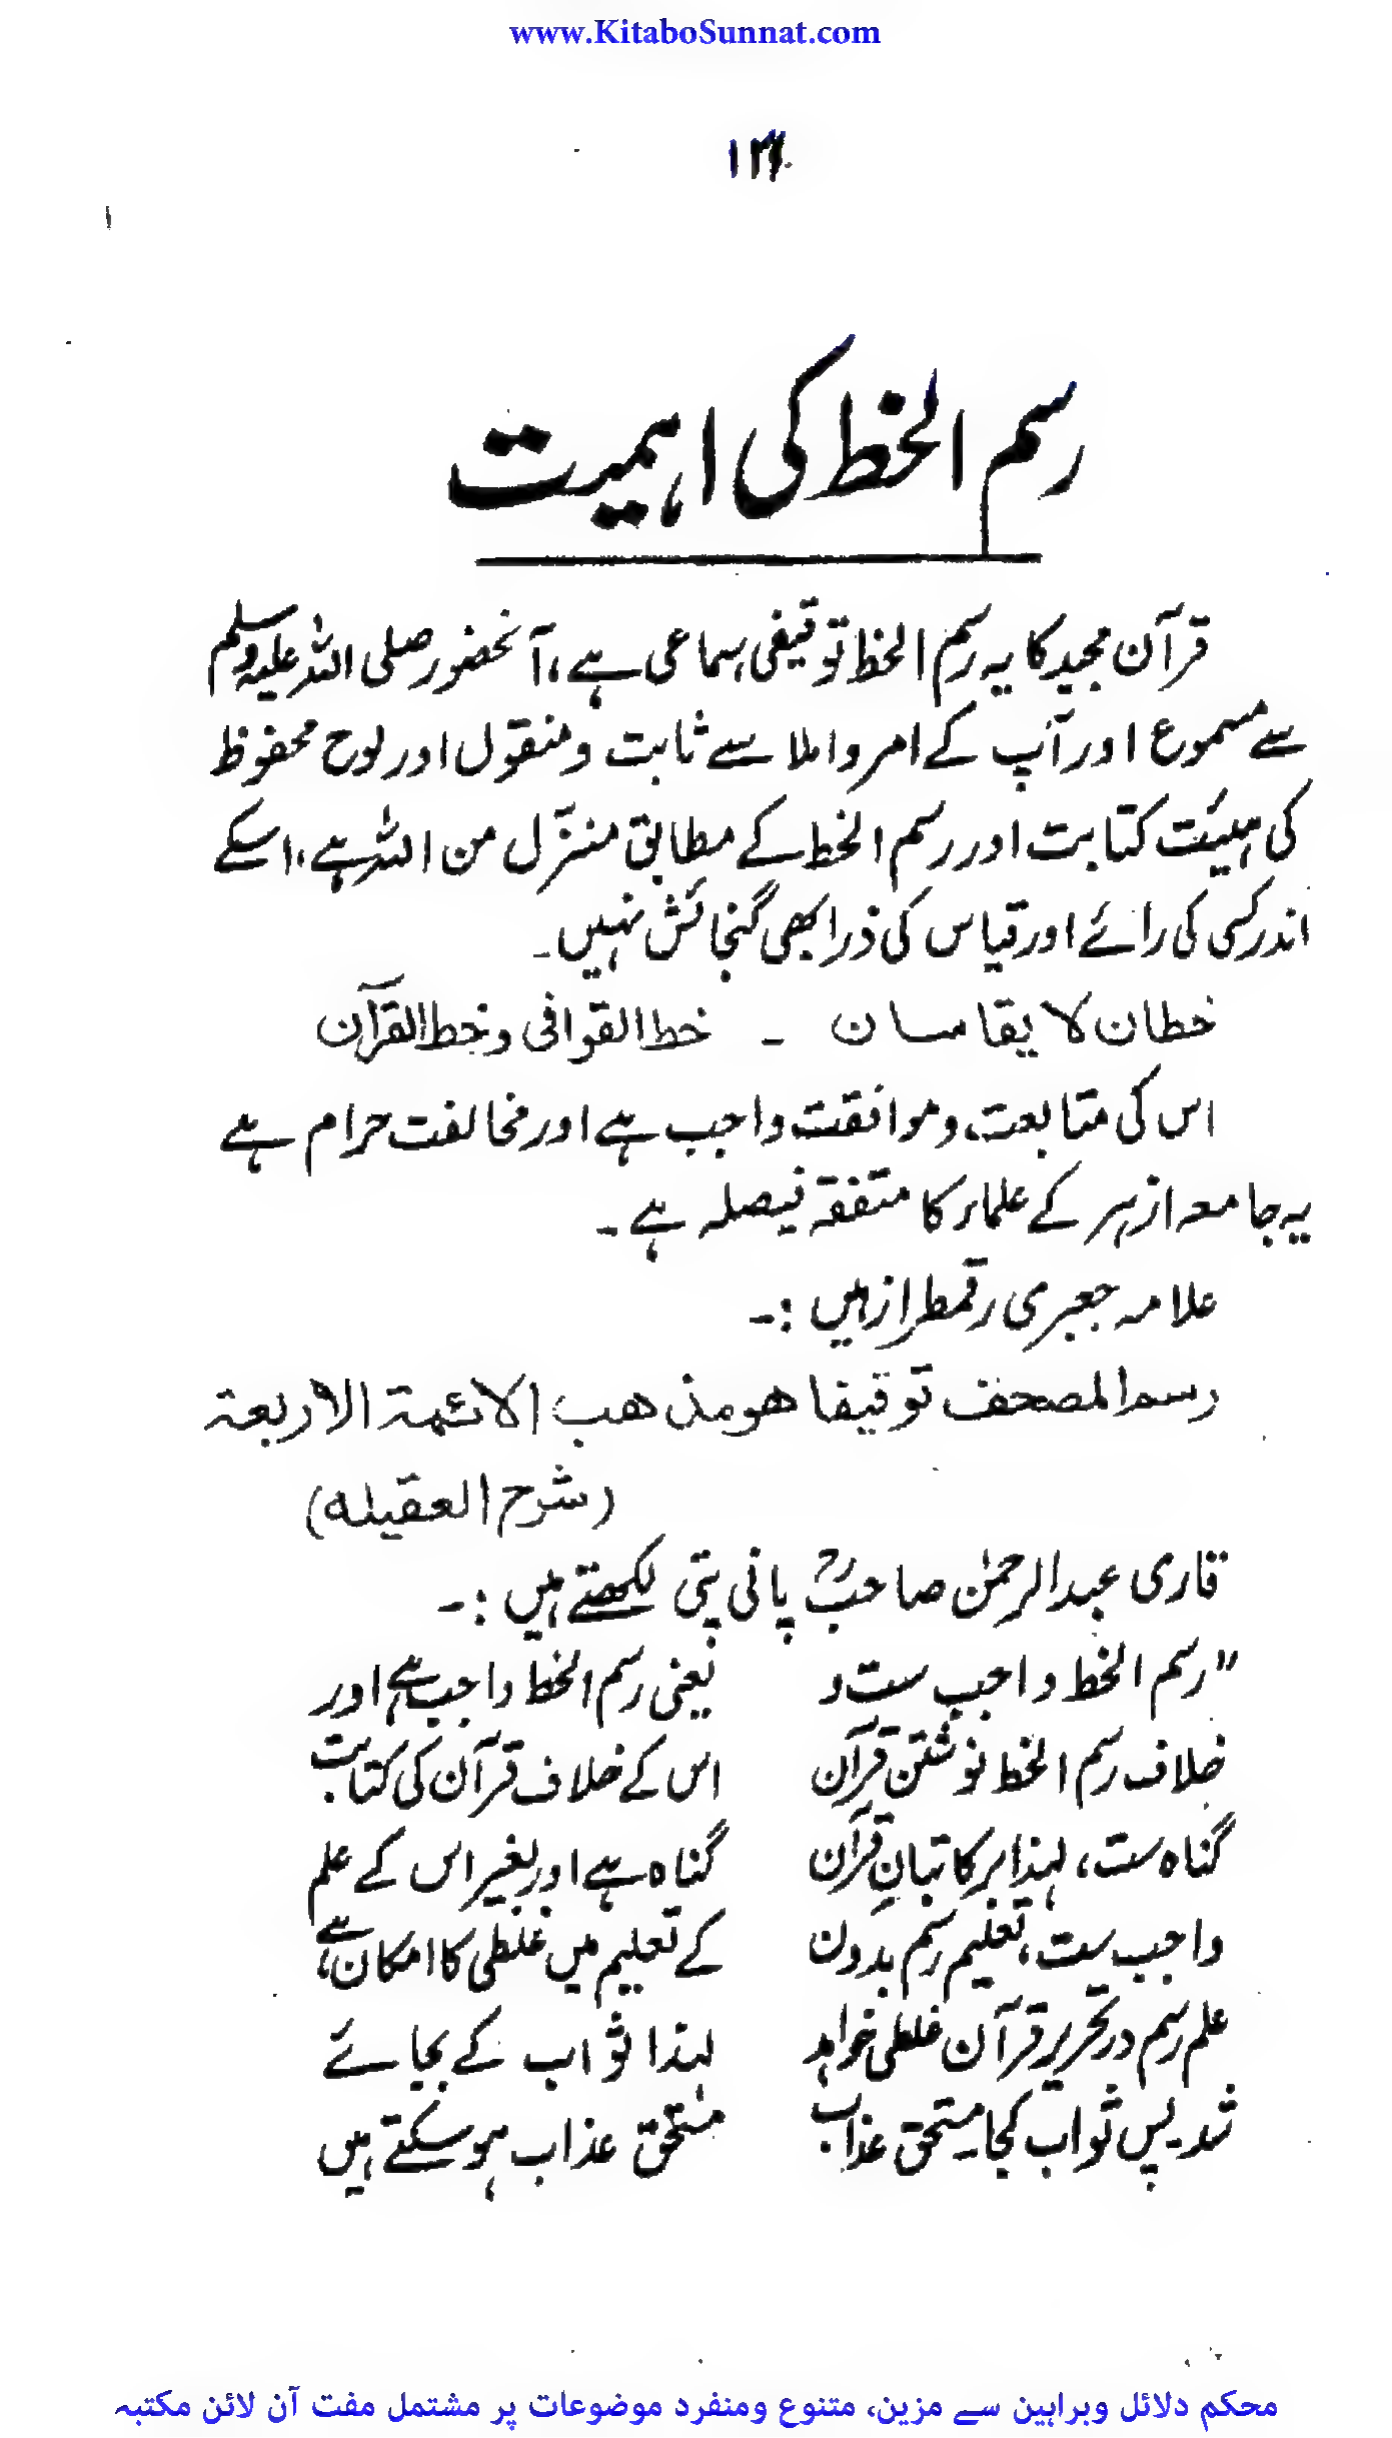 www.KitaboSunnat.com
رسم الخط کی اہمیت
قرآن مجید کا یہ رسم الخط توقیفی، سماعی ہے، آنحضور صلی اللہ علیہ وسلم
سے مسموع اور آپ کے امر واملا سے ثابت ومنقول اور لوح محفوظ
کی ہیئت کتابت اور رسم الخط کے مطابق منزّل من اللہ ہے، اسکے
اندر کسی کی رائے اور قیاس کی ذرا بھی گنجائش نہیں۔
خطان لا یقاسان ۔ خط القوافی وخط القرآن
اس کی متابعت وموافقت واجب ہے اور مخالفت حرام ہے
یہ جامعہ ازہر کے علماء کا متفقہ فیصلہ ہے۔
علامہ جعبری رقمطراز ہیں :۔
رسم المصحف توقیفا ھو مذھب الائمة الاربعة
(شرح العقیله)
قاری عبدالرحمٰن صاحبؒ پانی پتی لکھتے ہیں :۔
"رسم الخط واجب ست و
خلاف رسم الخط نوشتن قرآن
گناہ ست، لہذا بر کاتبانِ قرآن
واجب ست، تعلیم رسم بدون
علم رسم در تحریر قرآن غلطی خواہد
شد پس ثواب کجا مستحق عذاب
یعنی رسم الخط واجب ہے اور
اس کے خلاف قرآن کی کتابت
گناہ ہے اور بغیر اس کے علم
کے تعلیم میں غلطی کا امکان ہے،
لہذا ثواب کے بجائے
مستحق عذاب ہو سکتے ہیں
محکم دلائل وبراہین سے مزین، متنوع ومنفرد موضوعات پر مشتمل مفت آن لائن مکتبہ